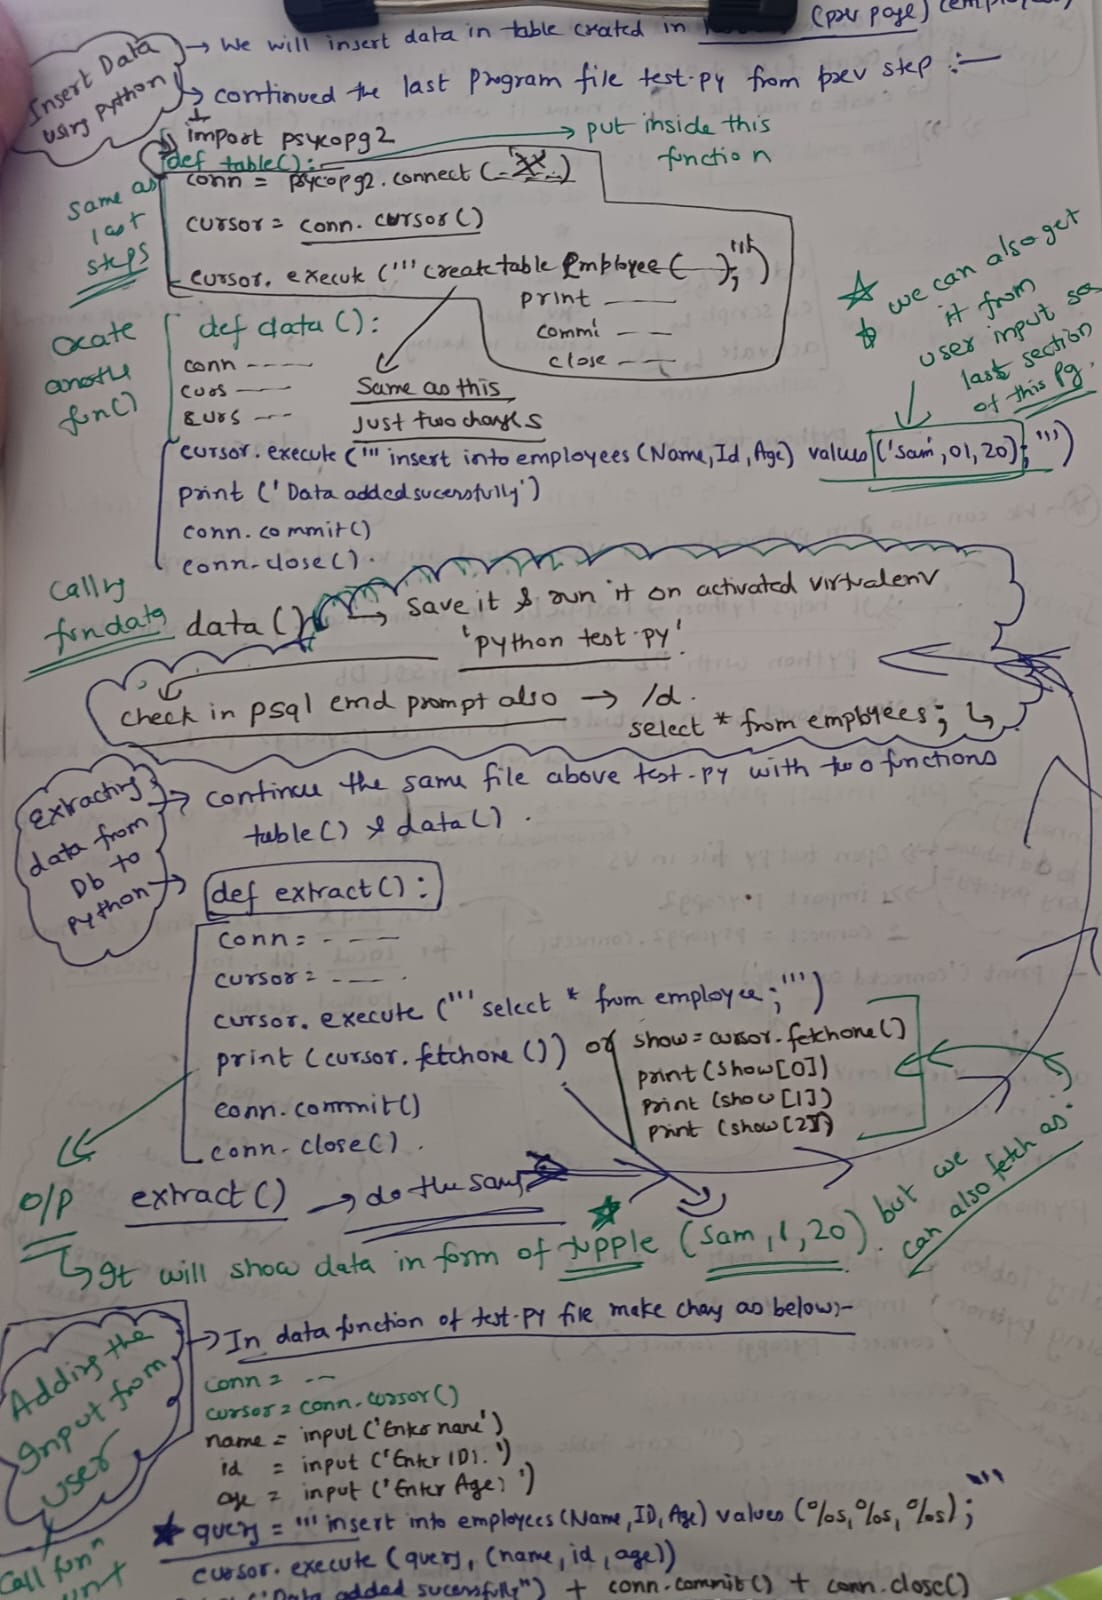 (prev page) (employees)
Insert Data
using python
→ We will insert data in table created in
→ continued the last program file test.py from prev step :—
import psycopg2
→ put inside this
function
def table():
same as
last
steps
conn = psycopg2.connect (-----)
cursor = conn.cursor()
cursor.execute (''' create table Employee ( — ); ''')
print ——
commi ——
close ——
★ we can also get
it from
user input see
last section
of this Pg.
create
anothe
fun()
def data ():
conn ----
curs ----
curs ---
Same as this
Just two changes
cursor.execute (''' insert into employees (Name, Id, Age) values ('Sam', 01, 20); ''')
print ('Data added sucerssfully')
conn.commit()
conn.close().
Calling
fundata
data()
→ save it & run it on activated virtualenv
'python test.py'
check in psql cmd prompt also → /d.
select * from employees;
Extracting
data from
Db to
python
→ continue the same file above test.py with two functions
table() & data().
→ def extract():
conn = - ——
cursor = ----.
cursor.execute (''' select * from employee; ''')
print (cursor.fetchone ()) or show = cursor.fetchone()
print (show[0])
print (show[1])
print (show[2])
conn.commit()
conn.close().
O/P
extract() → do the same
It will show data in form of tupple (Sam, 1, 20). but we
can also fetch as.
Adding the
Input from
user
→ In data function of test.py file make chang as below:-
conn = --
cursor = conn.cursor()
name = input ('Enter name')
id = input ('Enter ID: ')
age = input ('Enter Age: ')
★ query = ''' insert into employees (Name, ID, Age) values (%s, %s, %s); '''
cursor.execute (query, (name, id, age))
Call fun^n
('Data added sucerssfully") + conn.commit() + conn.close()